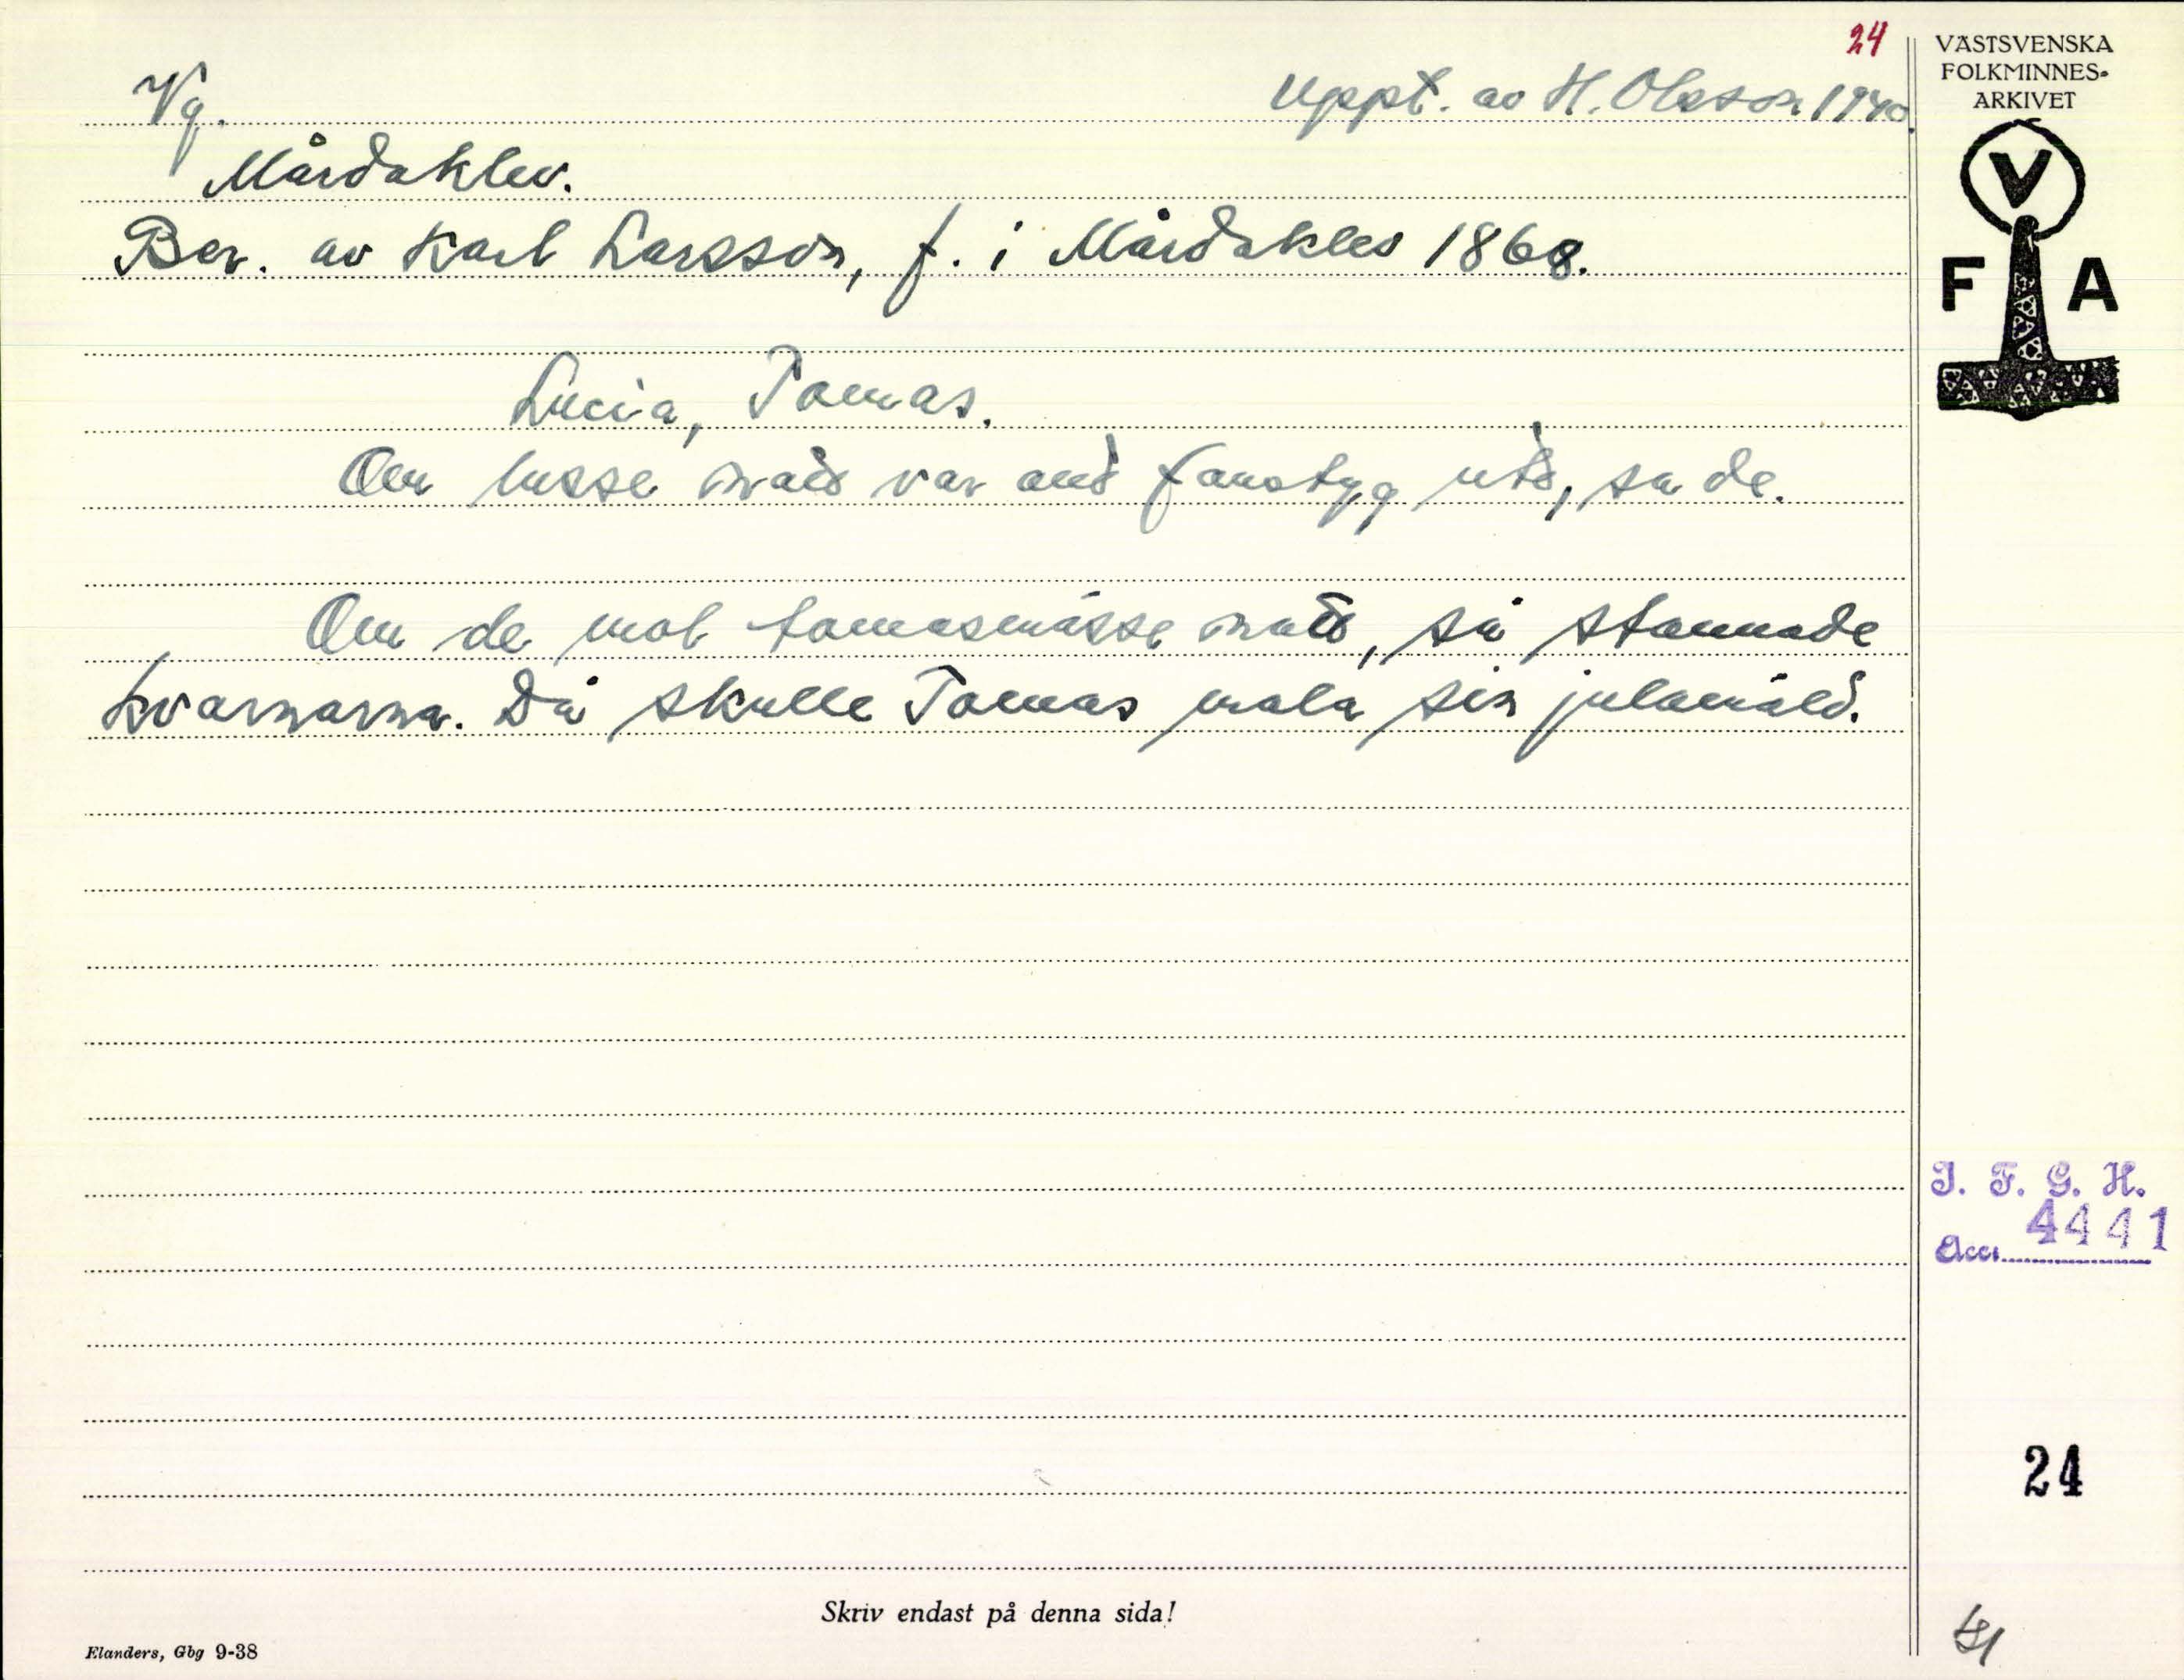 24
Vg. Uppt. av H. Olsson 1940.
Mårdaklev.
Ber. av Karl Larsson, f. i Mårdaklev 1868.
Lucia, Tomas.
Om lusse var fanstyg ute, sa de.
Om de mol tomasmässe så stannade
kvarnarna. Då skulle Tomas mala sin julamäld.
Skriv endast på denna sida!
Elanders, Gbg 9-38
VÄSTSVENSKA
FOLKMINNES-
ARKIVET
V
F A
I. F. G. H.
Acc. 4441
24